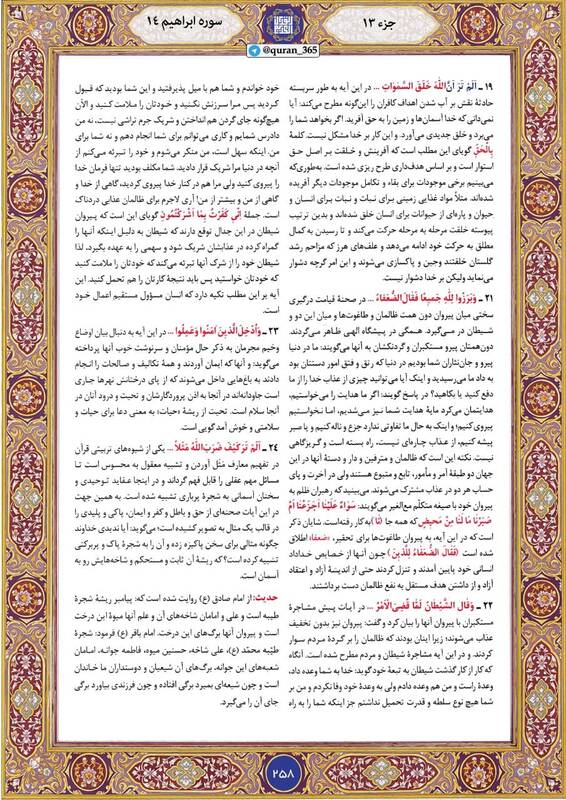 جزء ۱۳
سوره ابراهیم ۱۴
@quran_365
۱۹ ـ اَلَمْ تَرَ اَنَّ اللهَ خَلَقَ السَّمَوَاتِ ... در این آیه به طور سربسته
حادثهٔ نقش بر آب شدن اهداف کافران را این‌گونه مطرح می‌کند: آیا
نمی‌دانی که خدا آسمان‌ها و زمین را به حق آفرید. اگر بخواهد شما را
می‌برد و خلق جدیدی می‌آورد. و این کار بر خدا مشکل نیست. کلمهٔ
بِالْحَقِّ گویای این مطلب است که آفرینش و خلقت بر اصل حق
استوار است و بر اساس هدف‌داری طرح ریزی شده است. به‌طوری‌که
می‌بینیم برخی موجودات برای بقاء و تکامل موجودات دیگر آفریده
شده‌اند. مثلاً مواد غذایی زمینی برای نبات و نبات برای انسان و
حیوان و پاره‌ای از حیوانات برای انسان خلق شده‌اند و بدین ترتیب
پیوسته خلقت مرحله به مرحله حرکت می‌کند و تا رسیدن به کمال
مطلق به حرکت خود ادامه می‌دهد و علف‌های هرز که مزاحم رشد
گلستان خلقتند وجین و پاکسازی می‌شوند و این امر گرچه دشوار
می‌نماید ولیکن بر خدا دشوار نیست.
۲۱ ـ وَبَرَزُوا لِلّٰهِ جَمِیعًا فَقَالَ الضُّعَفَاءُ ... در صحنهٔ قیامت درگیری
سختی میان پیروان دون همت ظالمان و طاغوت‌ها و میان این دو و
شیطان در می‌گیرد. همگی در پیشگاه الهی ظاهر می‌گردند.
دون‌همتان پیرو مستکبران و گردنکشان به آنها می‌گویند: ما در دنیا
پیرو و جان‌نثاران شما بودیم در دنیا که رتق و فتق امور دستتان بود
به داد ما می‌رسیدید و اینک آیا می‌توانید چیزی از عذاب خدا را از ما
دفع کنید یا بکاهید؟ در پاسخ گویند: اگر ما هدایت را می‌خواستیم،
هدایتمان می‌کرد مایهٔ هدایت شما نیز می‌شدیم، اما نخواستیم
پیروی کنیم؛ و اینک به حال ما تفاوتی ندارد جزع و ناله کنیم و یا صبر
پیشه کنیم، از عذاب چاره‌ای نیست، راه بسته است و گریزگاهی
نیست. نکته این است که ظالمان و مترفین و دار و دستهٔ آنها در این
جهان دو طبقهٔ آمر و مأمور، تابع و متبوع هستند ولی در آخرت و پای
حساب هر دو در عذاب مشترک می‌شوند. می‌بینید که رهبران ظلم به
پیروان خود با صیغه متکلّم مع‌الغیر می‌گویند: سَوَاءٌ عَلَیْنَا اَجَزِعْنَا اَمْ
صَبَرْنَا مَا لَنَا مِنْ مَحِیصٍ که همه جا (نَا) به کار رفته‌است. شایان ذکر
است که در این آیه، به پیروان طاغوت‌ها برای تحقیر، «ضعفاء» اطلاق
شده است (فَقَالَ الضُّعَفَاءُ لِلَّذِینَ) چون آنها از خصایص خداداد
انسانی خود پایین آمدند و تنزل کردند حتی از اندیشهٔ آزاد و اعتقاد
آزاد و از داشتن هدف مستقل به نفع ظالمان دست برداشتند.
۲۲ ـ وَقَالَ الشَّیْطَانُ لَمَّا قُضِیَ الْاَمْرُ ... در آیات پیش مشاجرهٔ
مستکبران با پیروان آنها را بیان کرد و گفت: پیروان نیز بدون تخفیف
عذاب می‌شوند؛ زیرا اینان بودند که ظالمان را بر گردهٔ مردم سوار
کردند. و در این آیه مشاجرهٔ شیطان و مردم مطرح شده است. آنگاه
که کار از کار گذشت شیطان به تبعهٔ خود گوید: خدا به شما وعده داد،
وعدهٔ راست و من هم وعده دادم ولی به وعدهٔ خود وفا نکردم و من بر
شما هیچ نوع سلطه و قدرت تحمیل نداشتم جز اینکه شما را به راه
خود خواندم و شما هم با میل پذیرفتید و این شما بودید که قبول
کردید پس مرا سرزنش نکنید و خودتان را ملامت کنید و الآن
هیچ‌گونه جای گردن هم انداختن و شریک جرم تراشی نیست، نه من
دادرس شمایم و کاری می‌توانم برای شما انجام دهم و نه شما برای
من. اینکه سهل است، من منکر می‌شوم و خود را تبرئه می‌کنم از
آنچه در دنیا مرا شریک قرار دادید، شما مکلف بودید تنها فرمان خدا
را پیروی کنید ولی مرا هم در کنار خدا پیروی کردید، گاهی از خدا و
گاهی از من و بیشتر از من! آری لاجرم برای ظالمان عذابی دردناک
است. جملهٔ اِنِّی کَفَرْتُ بِمَا اَشْرَکْتُمُونِ گویای این است که پیروان
شیطان در این جدال توقع دارند که شیطان به دلیل اینکه آنها را
گمراه کرده در عذابشان شریک شود و سهمی را به عهده بگیرد، لذا
شیطان خود را از شرک آنها تبرئه می‌کند که خودتان را ملامت کنید
که خودتان خواستید پس باید نتیجهٔ کارتان را هم تحمل کنید. این
آیه بر این مطلب تکیه دارد که انسان مسؤول مستقیم اعمال خود
است.
۲۳ ـ وَاُدْخِلَ الَّذِینَ آمَنُوا وَعَمِلُوا ... در این آیه به دنبال بیان اوضاع
وخیم مجرمان به ذکر حال مؤمنان و سرنوشت خوب آنها پرداخته
می‌گوید: و آنها که ایمان آوردند و همهٔ تکالیف و صالحات را انجام
دادند به باغ‌هایی داخل می‌شوند که از پای درختانش نهرها جاری
است جاودانه‌اند در آنجا به اذن پروردگارشان و تحیت و درود آنان در
آنجا سلام است. تحیت از ریشهٔ «حیات» به معنی دعا برای حیات و
سلامتی و خوش آمدگویی است.
۲۴ ـ اَلَمْ تَرَ کَیْفَ ضَرَبَ اللهُ مَثَلًا ... یکی از شیوه‌های تربیتی قرآن
در تفهیم معارف مثل آوردن و تشبیه معقول به محسوس است تا
مسائل مهم عقلی را قابل فهم گرداند و در اینجا عقاید توحیدی و
سخنان آسمانی به شجرهٔ پرباری تشبیه شده است. به همین جهت
در این آیات صحنه‌ای از حق و باطل و کفر و ایمان، پاکی و پلیدی را
در قالب یک مثال به تصویر کشیده است؛ می‌گوید: آیا ندیدی خداوند
چگونه مثالی برای سخن پاکیزه زده و آن را به شجرهٔ پاک و پربرکتی
تشبیه کرده است؟ که ریشهٔ آن ثابت و مستحکم و شاخه‌هایش رو به
آسمان است.
حدیث: از امام صادق (ع) روایت شده است که: پیامبر ریشهٔ شجرهٔ
طیبه است و علی و امامان شاخه‌های آن و علم آنها میوهٔ این درخت
است و پیروان آنها برگ‌های این درخت. امام باقر (ع) فرمود: شجرهٔ
طیّبه محمّد (ع)، علی شاخه، حسنین میوه، فاطمه جوانه، امامان
شعبه‌های این جوانه، برگ‌های آن شیعیان و دوستداران ما خاندان
است و چون شیعه‌ای بمیرد برگی افتاده و چون فرزندی بیاورد برگی
جای آن را می‌گیرد.
۲۵۸